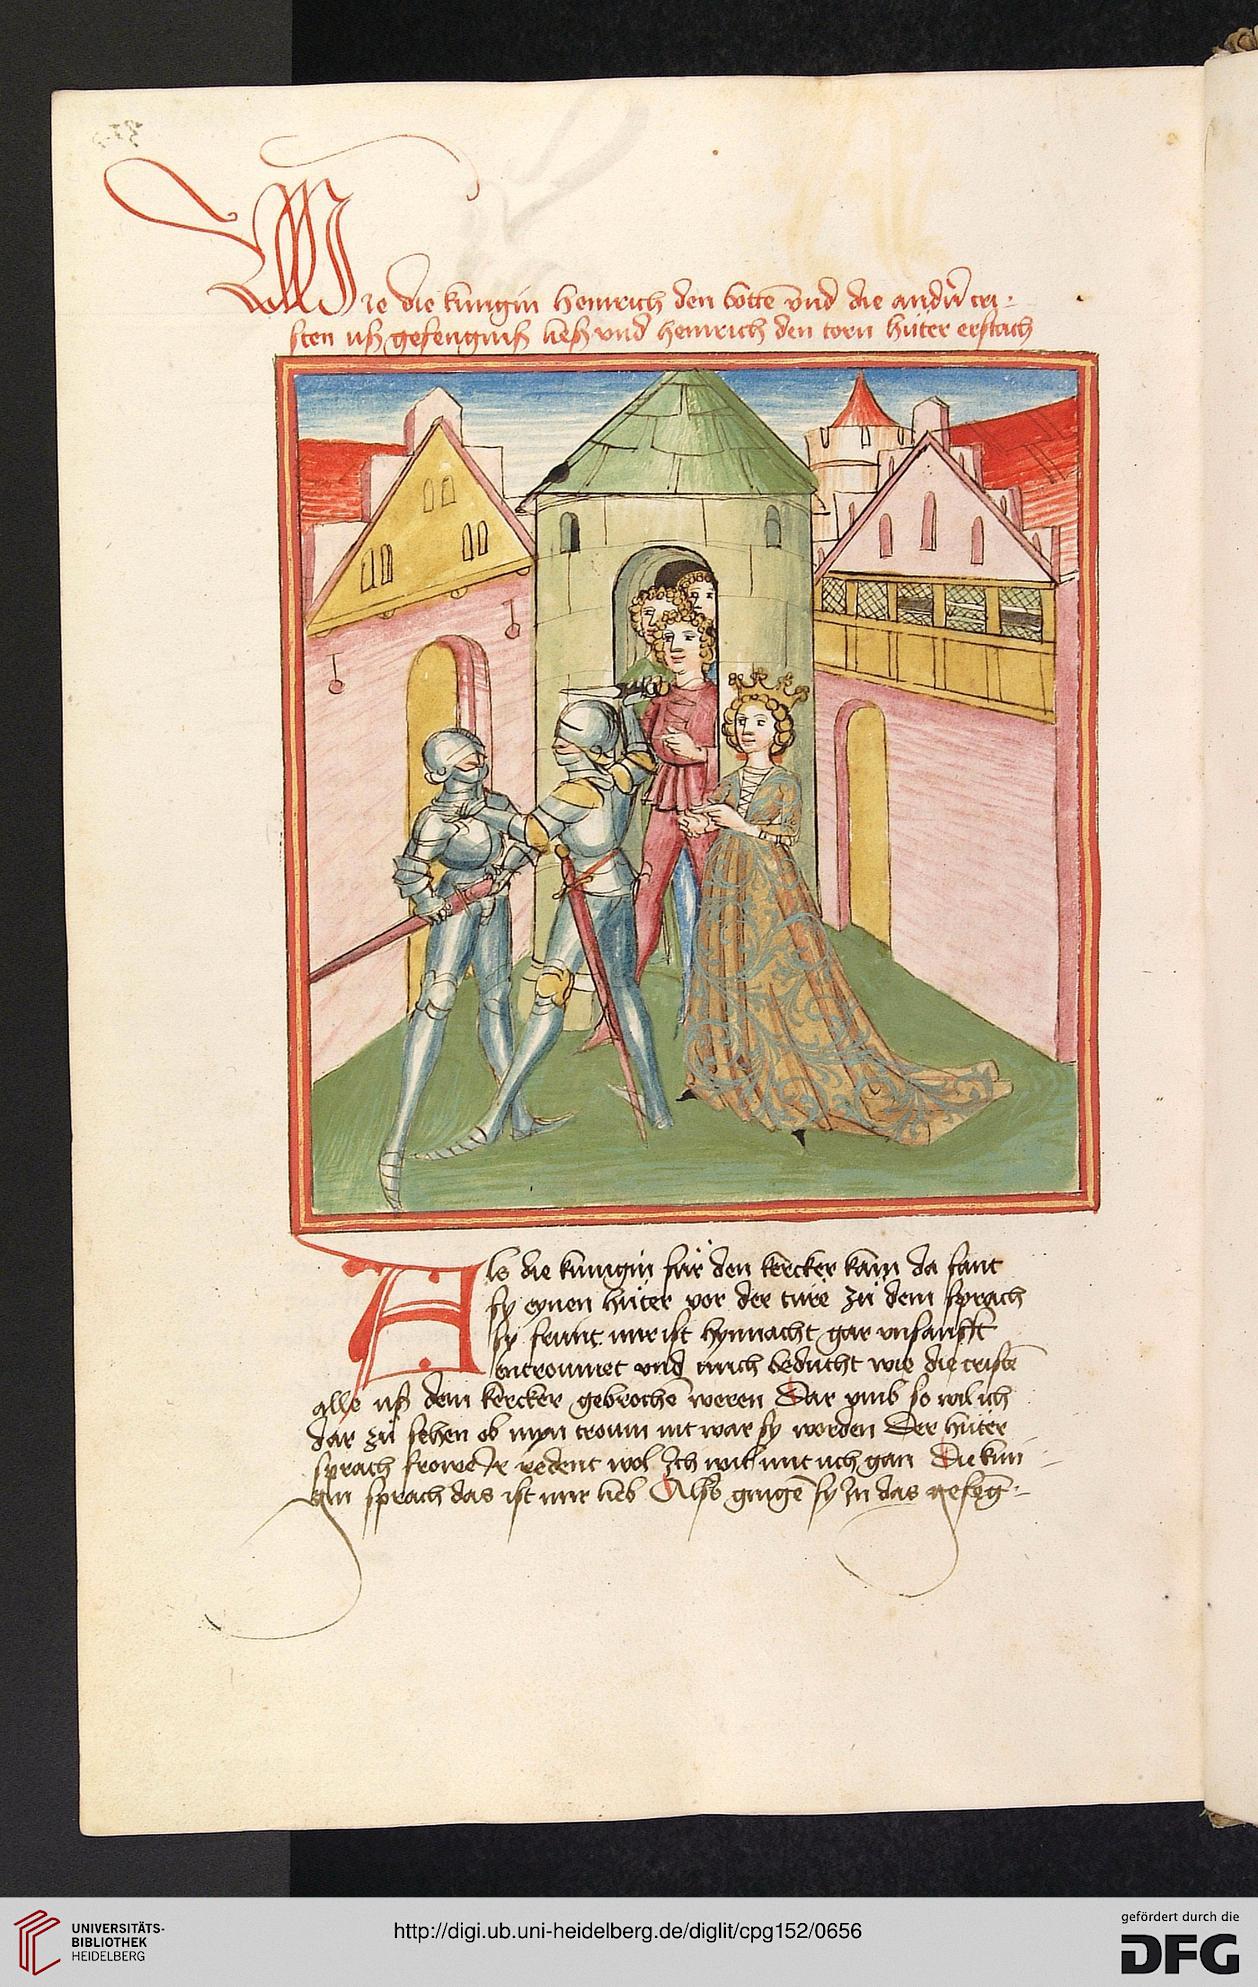 Wie die kungin heinrich den botten vnd die andern cri-
sten uß gefengniß ließ vnd heinrich den torn hüter erstach
Als die kunigin für den kercker kam da fant
sy eynen hüter vor der türe zü dem sprach
sy frunt mir ist hynnacht gar vnsanfft
entroumet vnd mich beducht wie die cristē
alle uß dem kercker gebrochē weren Dar vmb so wil ich
dar zü sehen ob myn troum mt war sy worden Der hüter
sprach frowe Ir redent wol Ich wil mit uch gan Die kun-
gin sprach das ist mir lieb Also gingē sy In das gefeg-
UNIVERSITÄTS-
BIBLIOTHEK
HEIDELBERG
http://digi.ub.uni-heidelberg.de/diglit/cpg152/0656
gefördert durch die
DFG